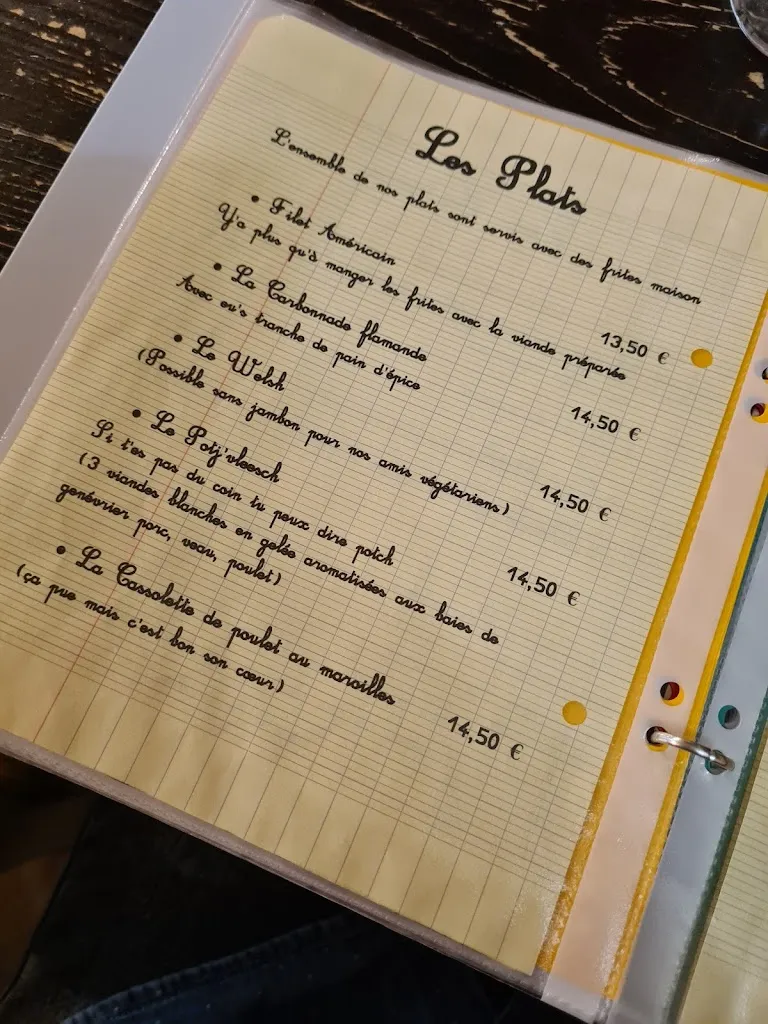 Les Plats
L'ensemble de nos plats sont servis avec des frites maison
• Filet Américain
13,50 €
Y'a plus qu'à manger les frites avec la viande préparée
• La Carbonnade flamande
14,50 €
Avec eu's tranche de pain d'épice
• Le Welsh
14,50 €
(Possible sans jambon pour nos amis végétariens)
• Le Potj'vleesch
14,50 €
Si t'es pas du coin tu peux dire potch
(3 viandes blanches en gelée aromatisées aux baies de
genévrier porc, veau, poulet)
• La Cassolette de poulet au maroilles
14,50 €
(ça pue mais c'est bon son cœur)